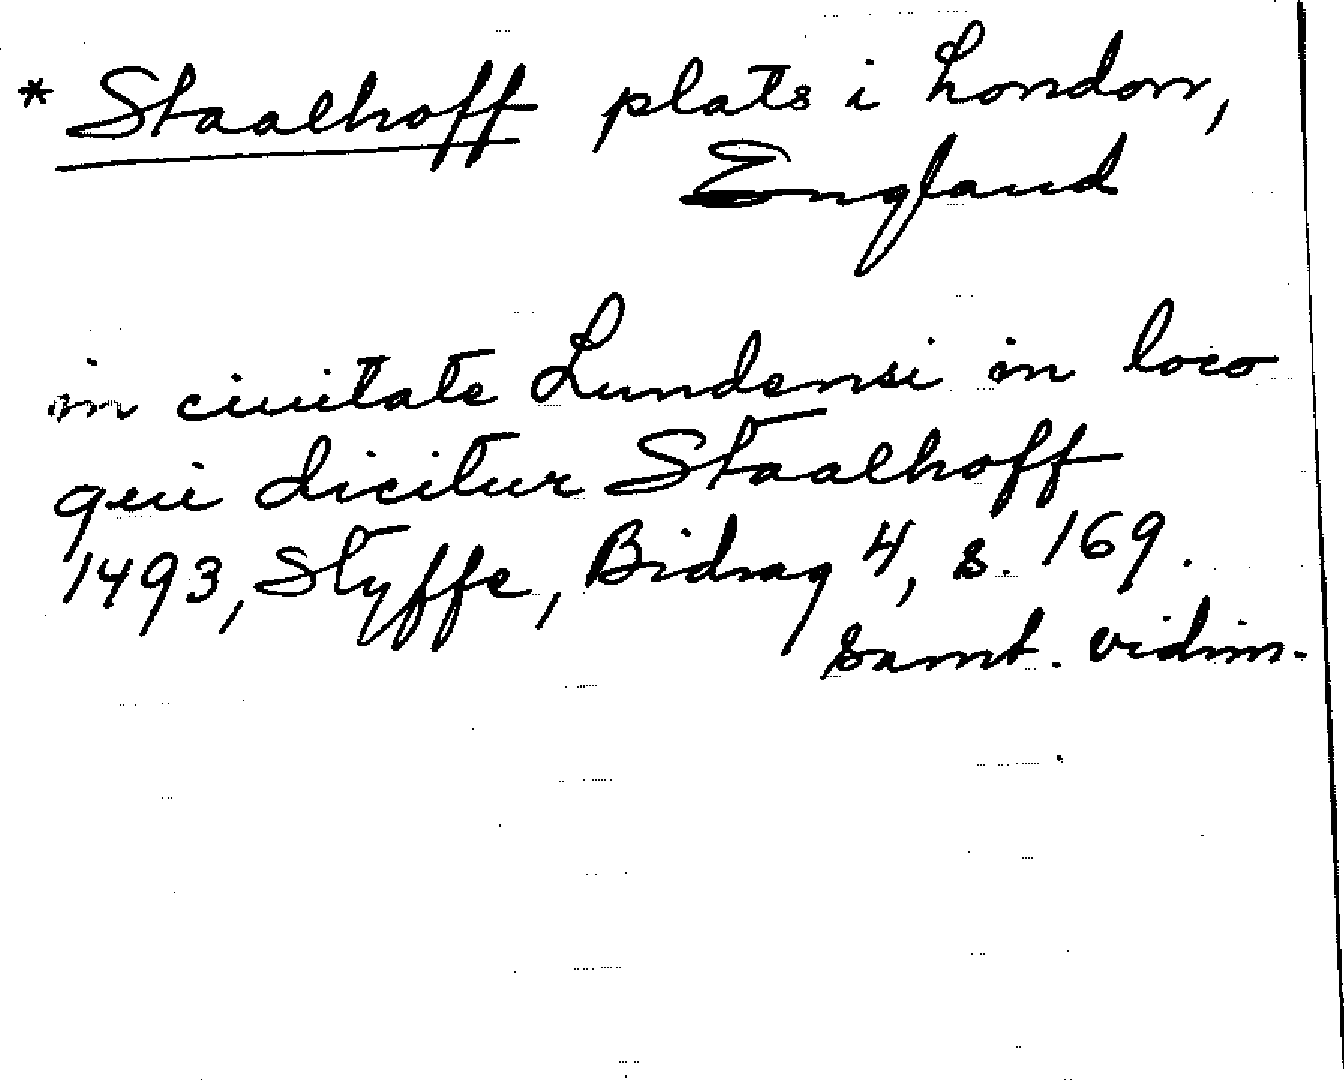 * Staalhoff plats i London,
England
in ciuitate Lundensi in loco
qui dicitur Staalhoff
1493, Styffe, Bidrag 4, s. 169.
samt. vidim.